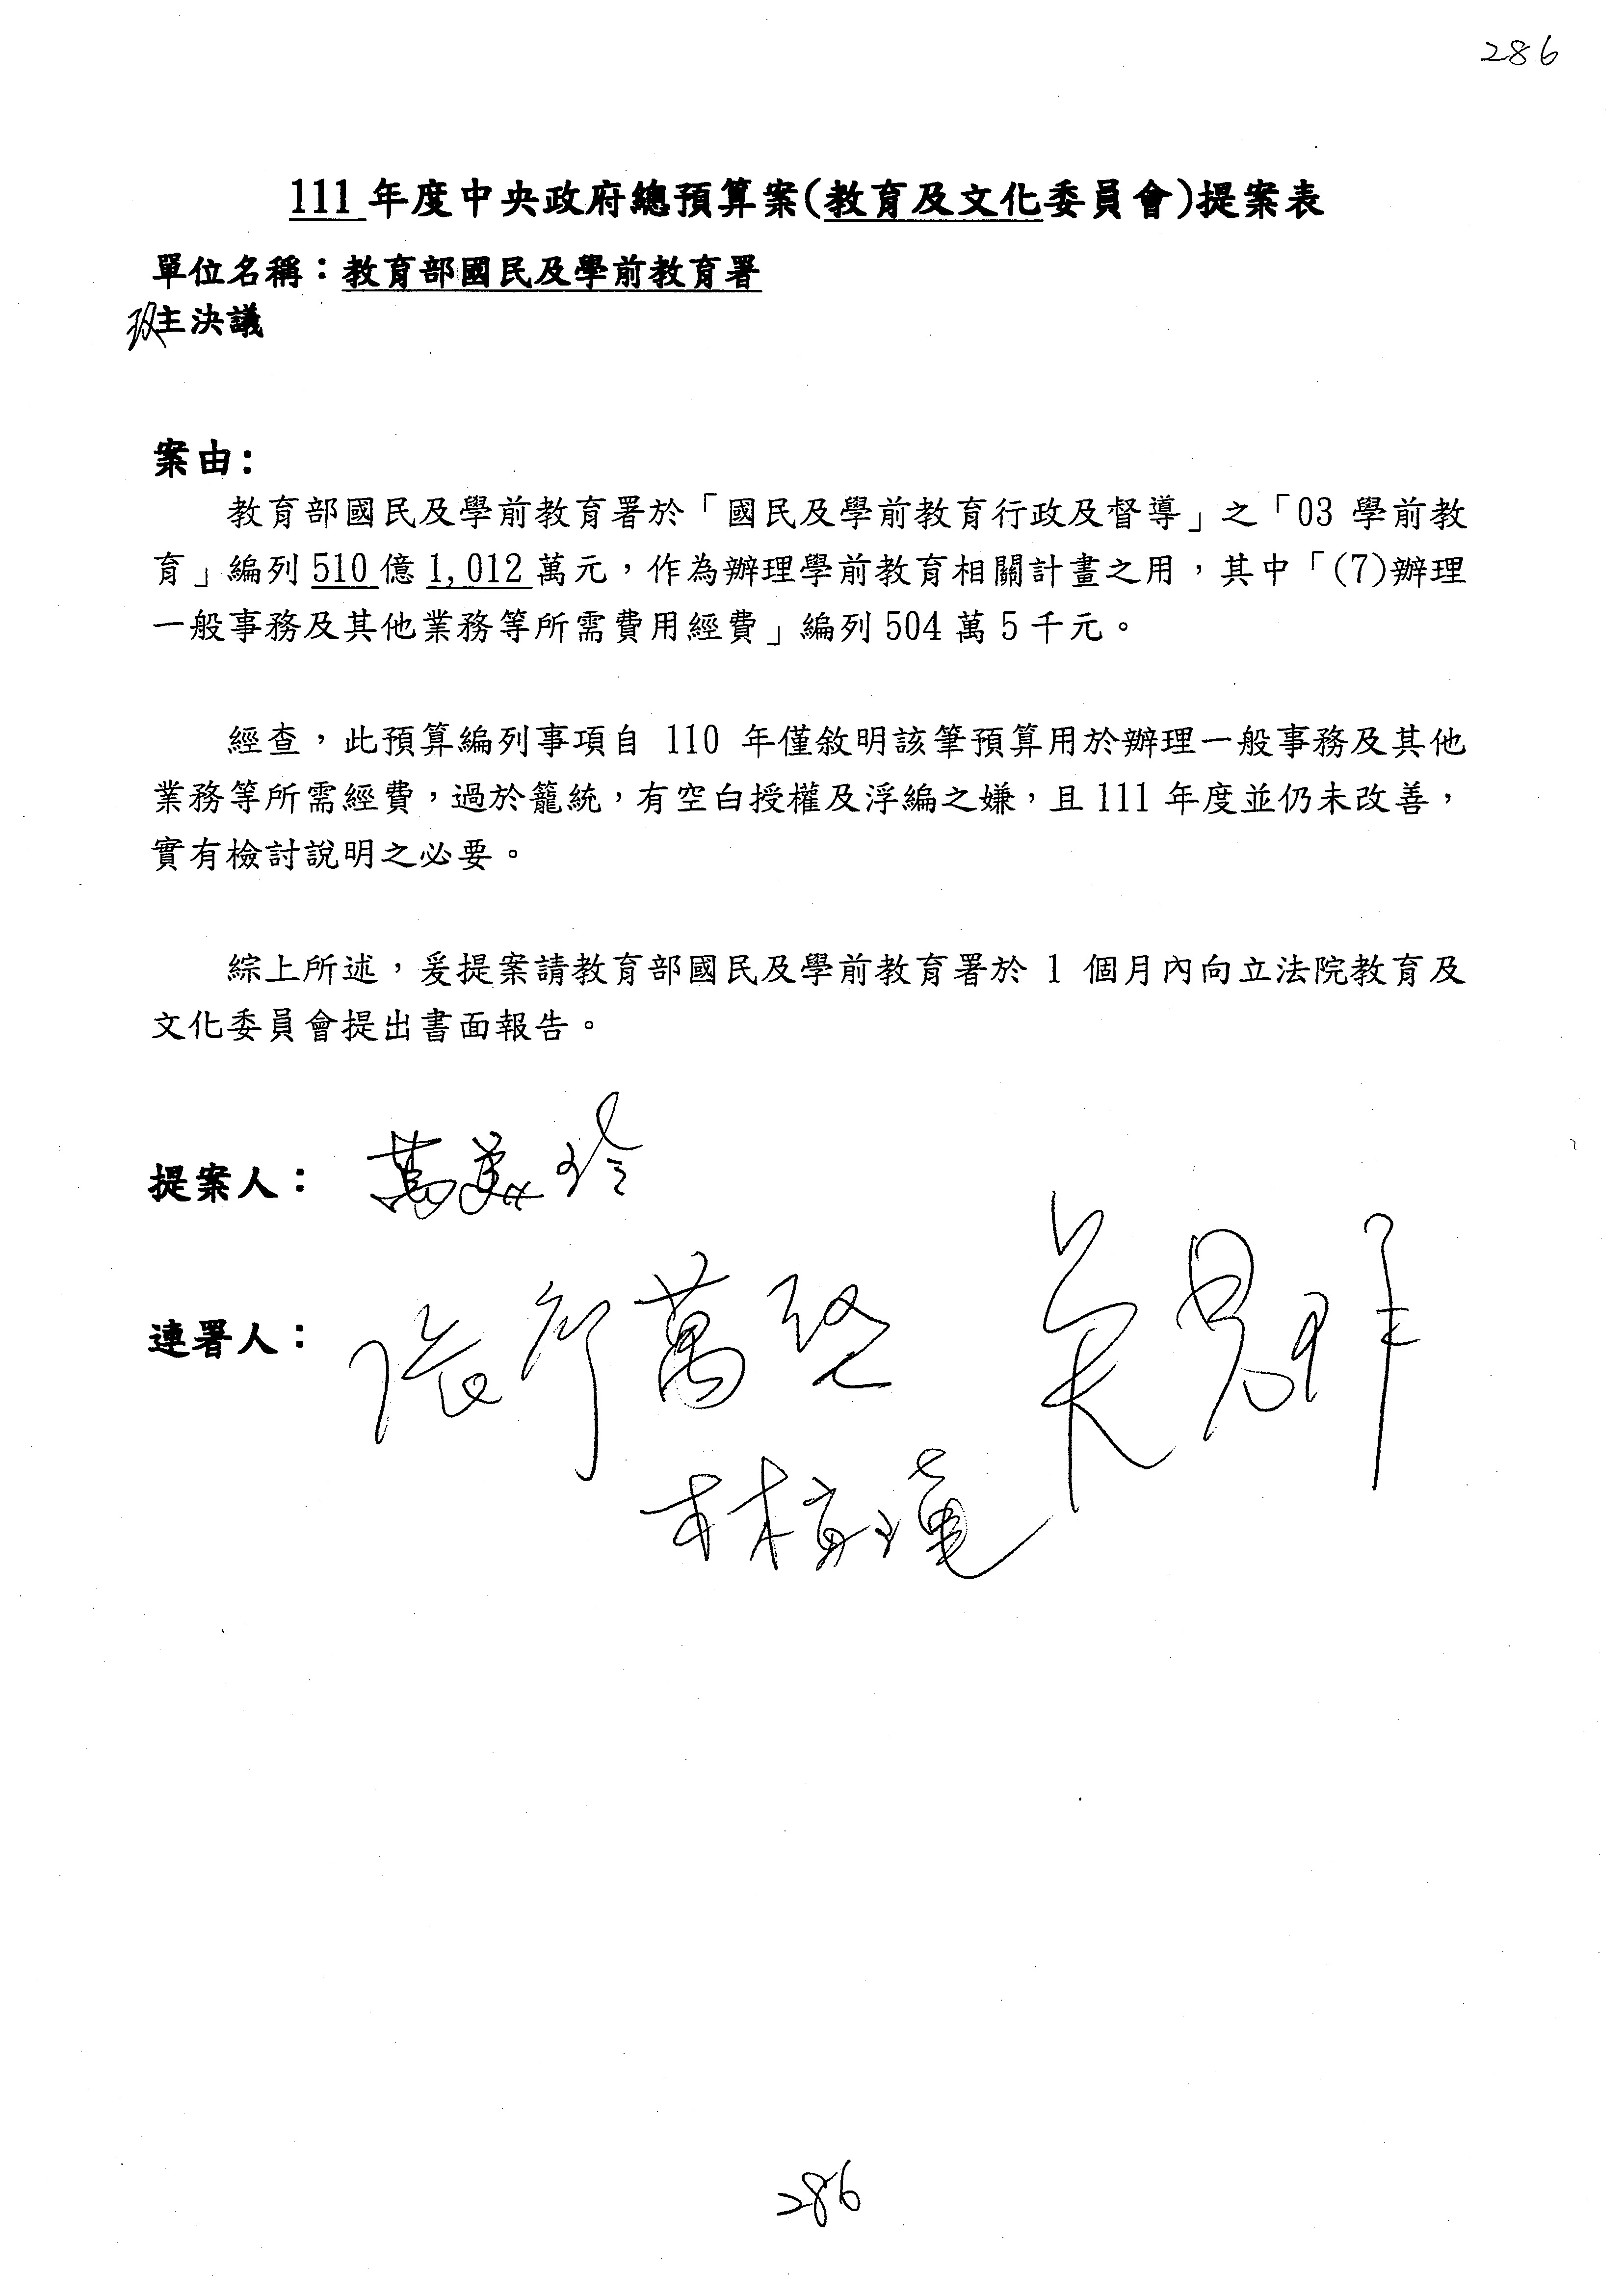 286
111年度中央政府總預算案(教育及文化委員會)提案表
單位名稱：教育部國民及學前教育署
主決議
案由：
教育部國民及學前教育署於「國民及學前教育行政及督導」之「03 學前教
育」編列510億1,012萬元，作為辦理學前教育相關計畫之用，其中「(7)辦理
一般事務及其他業務等所需費用經費」編列504萬5千元。
經查，此預算編列事項自 110 年僅敘明該筆預算用於辦理一般事務及其他
業務等所需經費，過於籠統，有空白授權及浮編之嫌，且111年度並仍未改善，
實有檢討說明之必要。
綜上所述，爰提案請教育部國民及學前教育署於 1 個月內向立法院教育及
文化委員會提出書面報告。
提案人： 萬美玲
連署人： 張廖萬堅 吳思
林
286